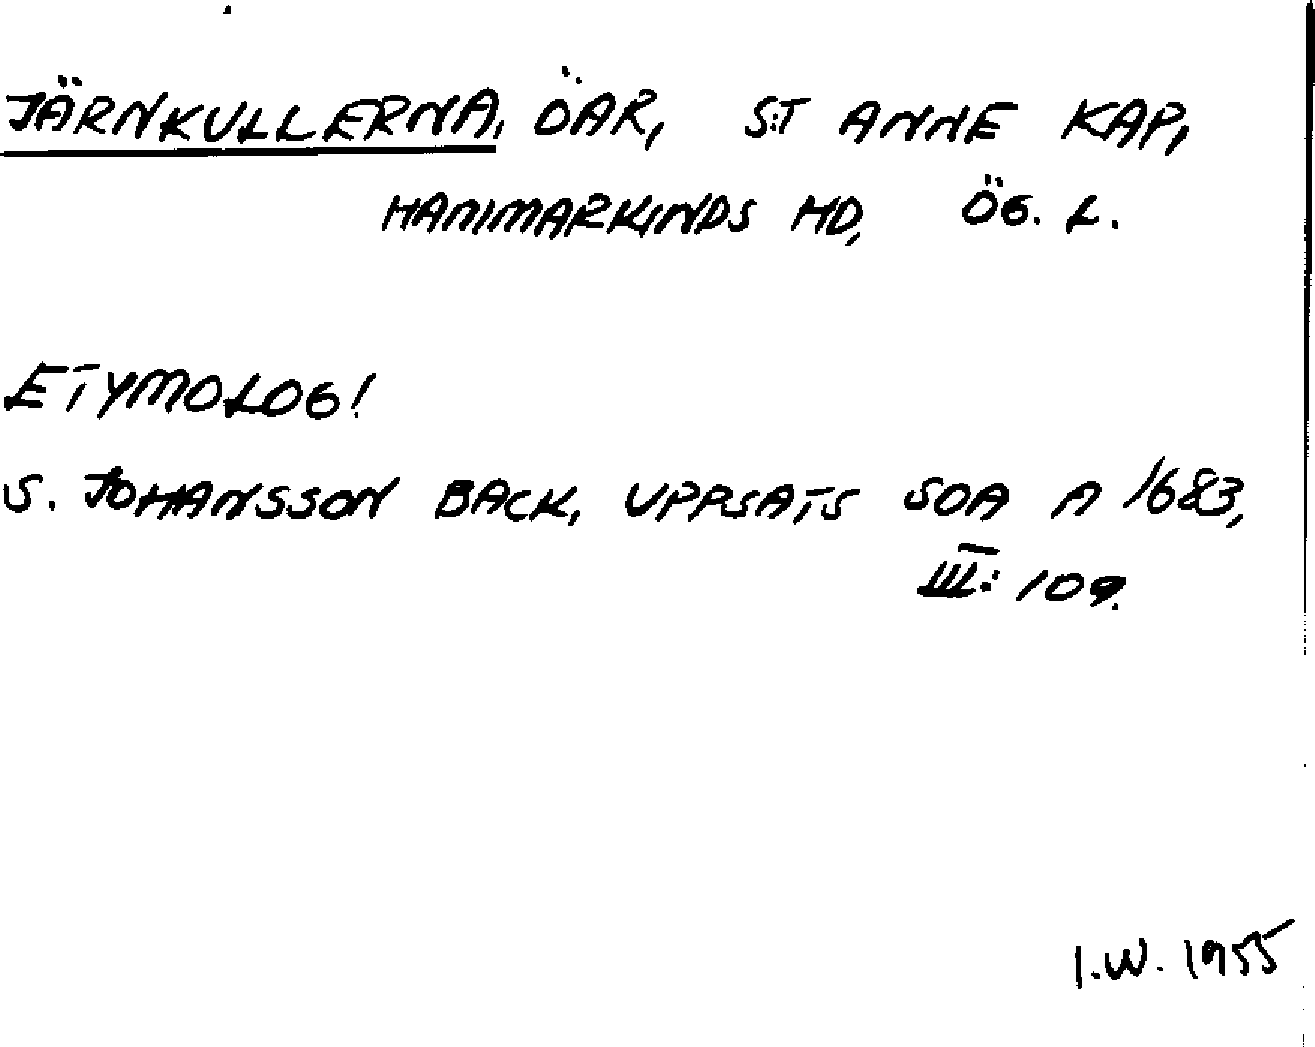 JÄRNKULLERNA, ÖAR, S:T ANNE KAP,
HAMMARKINDS HD, ÖG. L.
ETYMOLOGI
S. JOHANSSON BACK, UPPSATS SOA A 1683,
III: 109.
I.W. 1955